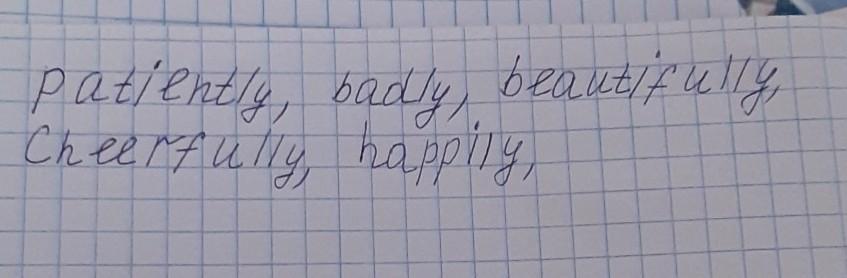 patiently, badly, beautifully,
Cheerfully, happily,